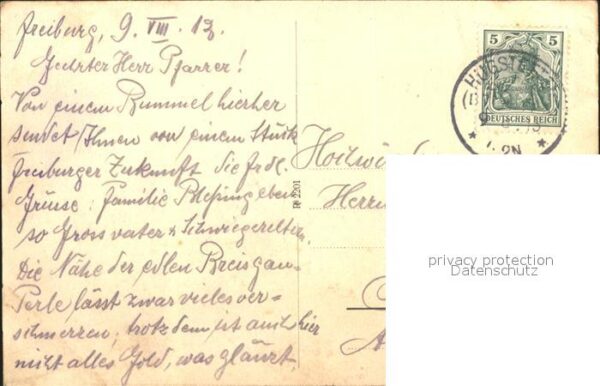 Freiburg, 9. VIII. 13.
Geehrter Herr Pfarrer!
Von einem Bummel hierher
sendet Ihnen von einem Stück
Freiburger Zukunft die frdl.
Grüsse: Familie eben
so Grossvater & Schwiegereltern.
Die Nähe der edlen Breisgau-
Perle lässt zwar vieles ver=
schmerzen, trotzdem ist auch hier
nicht alles Gold, was glänzt.
Hochwürden
Herrn
R 2201
5 5
DEUTSCHES REICH
privacy protection
Datenschutz